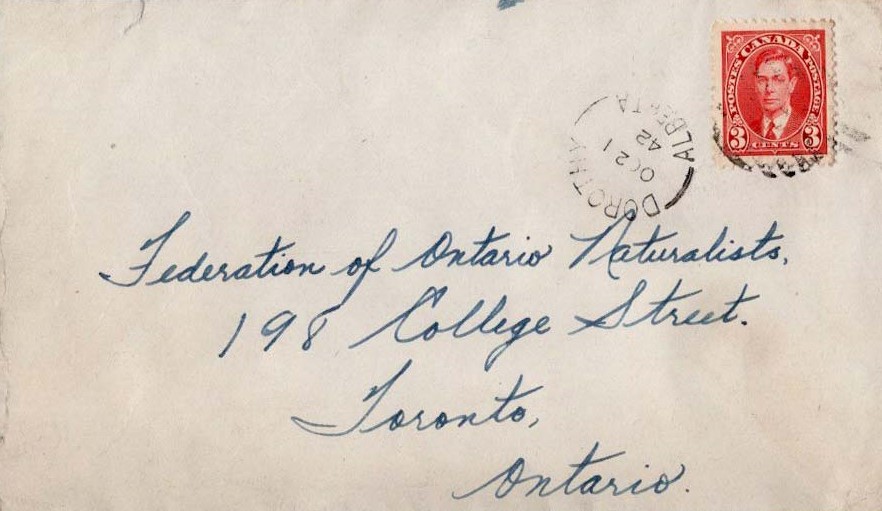 POSTES CANADA POSTAGE
3 CENTS 3
DOROTHY
OC 21
42
ALBERTA
Federation of Ontario Naturalists,
198 College Street.
Toronto,
Ontario.